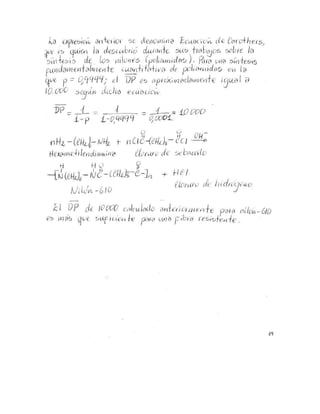 La expresión anterior se denomina Ecuación de Carothers,
que es quien la descubrió durante sus trabajos sobre la
síntesis de los nilones (poliamidas). Para una síntesis
fundamentalmente cuantitativa de poliamidas en la
que p = 0,9999; el DP es aproximadamente igual a
10.000 según dicha ecuación
DP = 1/1-p = 1/1-0,9999 = 1/0,0001 = 10.000
O O
nH₂-(CH₂)-NH₂ + nClC-(CH₂)₈-CCl OH⁻
Hexametilendiamina Cloruro de sebacoilo
H H O O
-[N(CH₂)₆-NC-(CH₂)₈-C-]n + HCl
Nilón-610 Cloruro de hidrógeno
El DP de 10.000 calculado anteriormente para nilón-610
es más que suficiente para una fibra resistente.